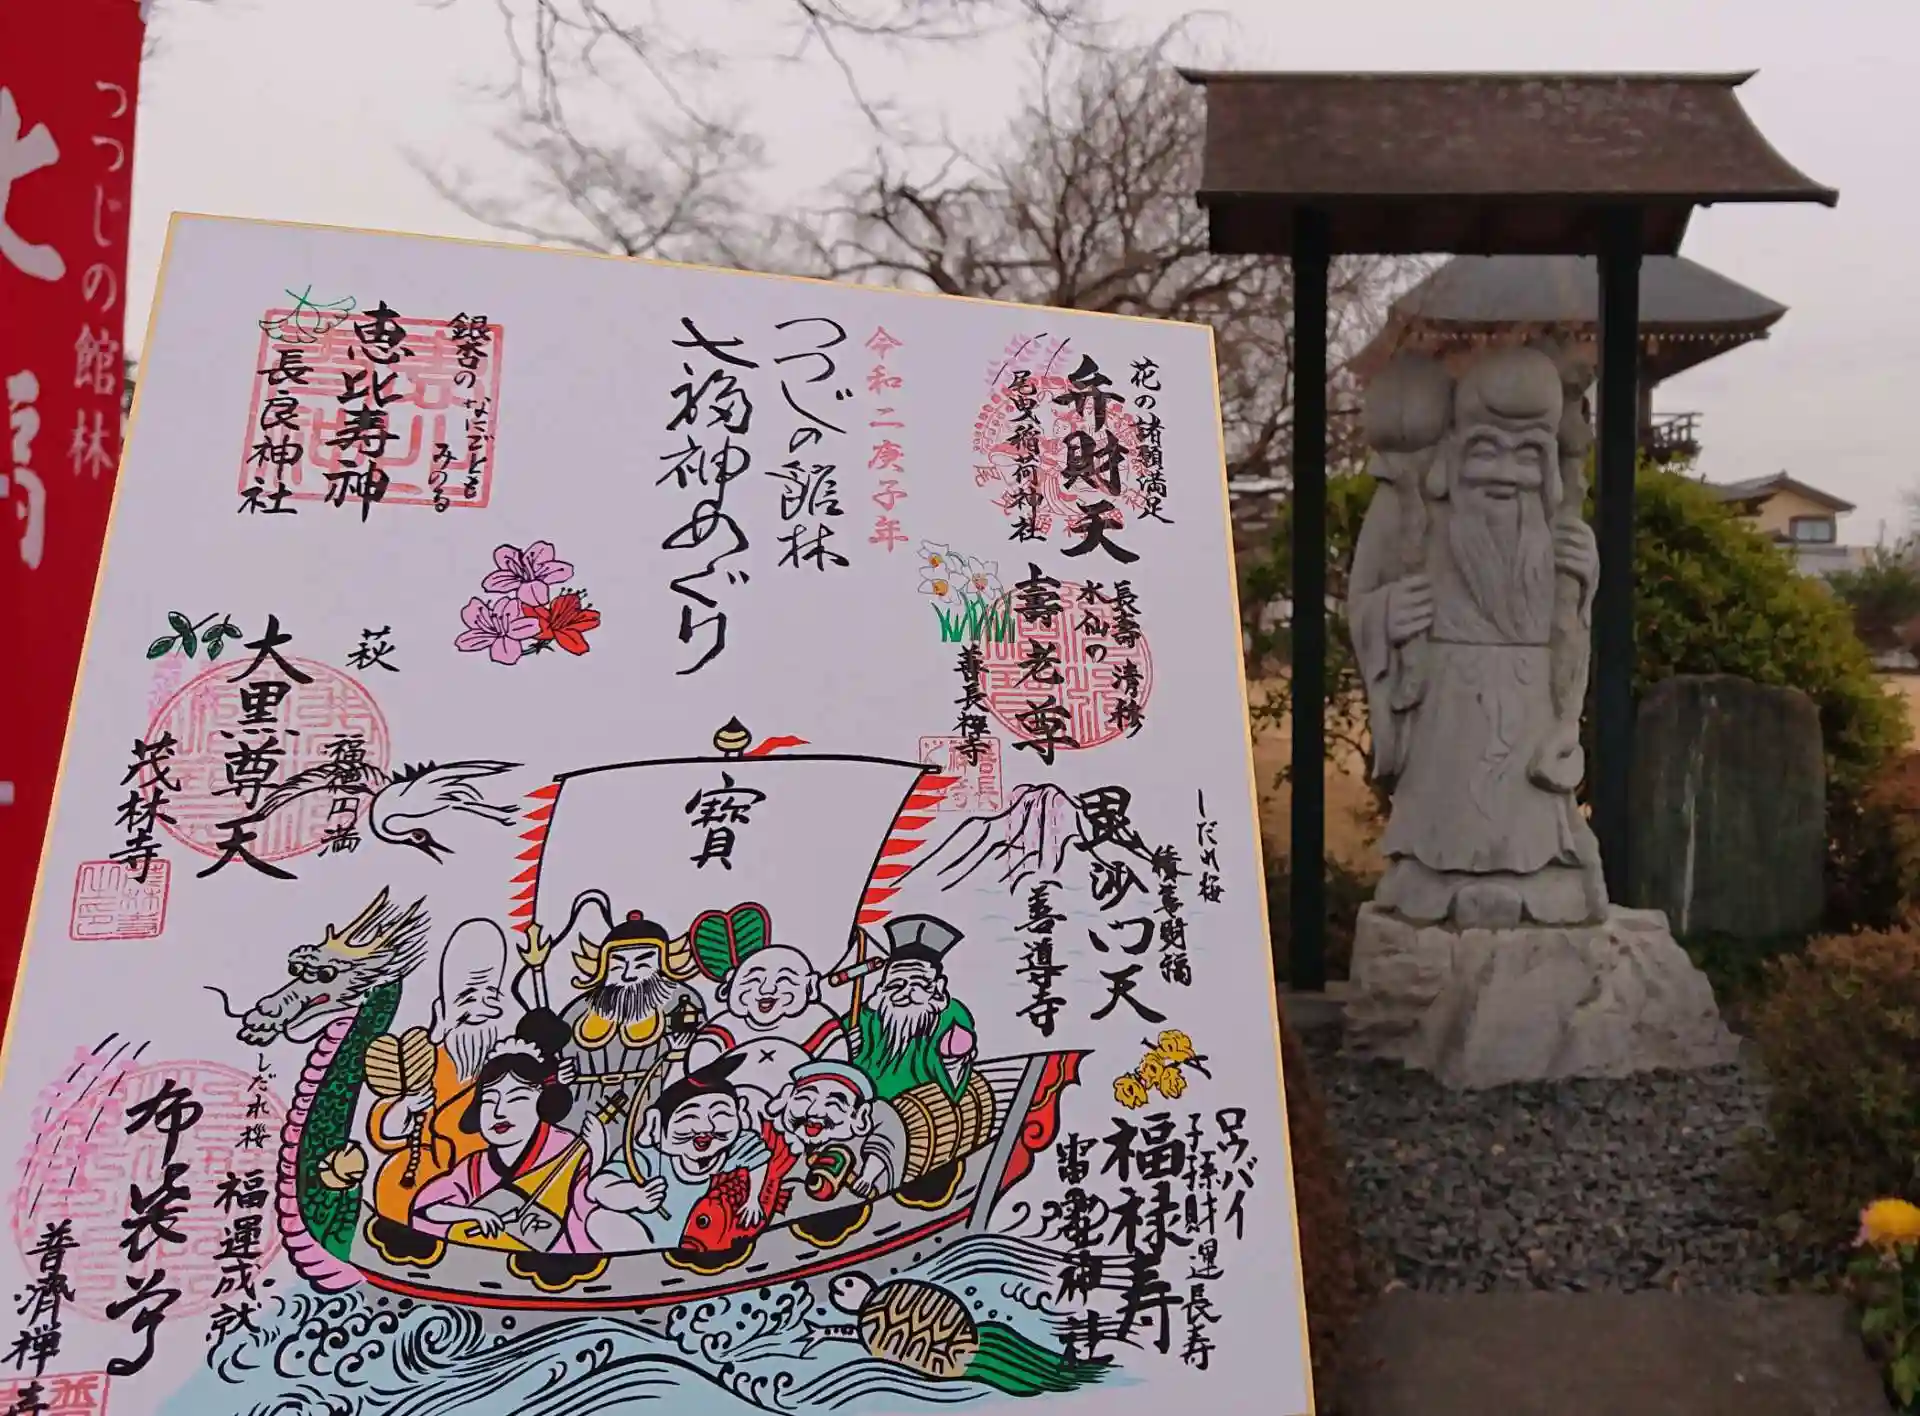 つつじの館林
花の諸願満足
弁財天
尾曳稲荷神社
令和二庚子年
つつじの館林
七福神めぐり
銀杏の
なにごとも
みのる
恵比寿神
長良神社
長壽
水仙の
壽老尊
善長禅寺
萩
福徳円満
大黒尊天
茂林寺
寶
しだれ梅
毘沙門天
善導寺
ロウバイ
子孫財運長寿
福禄寿
雷電神社
しだれ桜
福運成就
布袋尊
普済禅寺